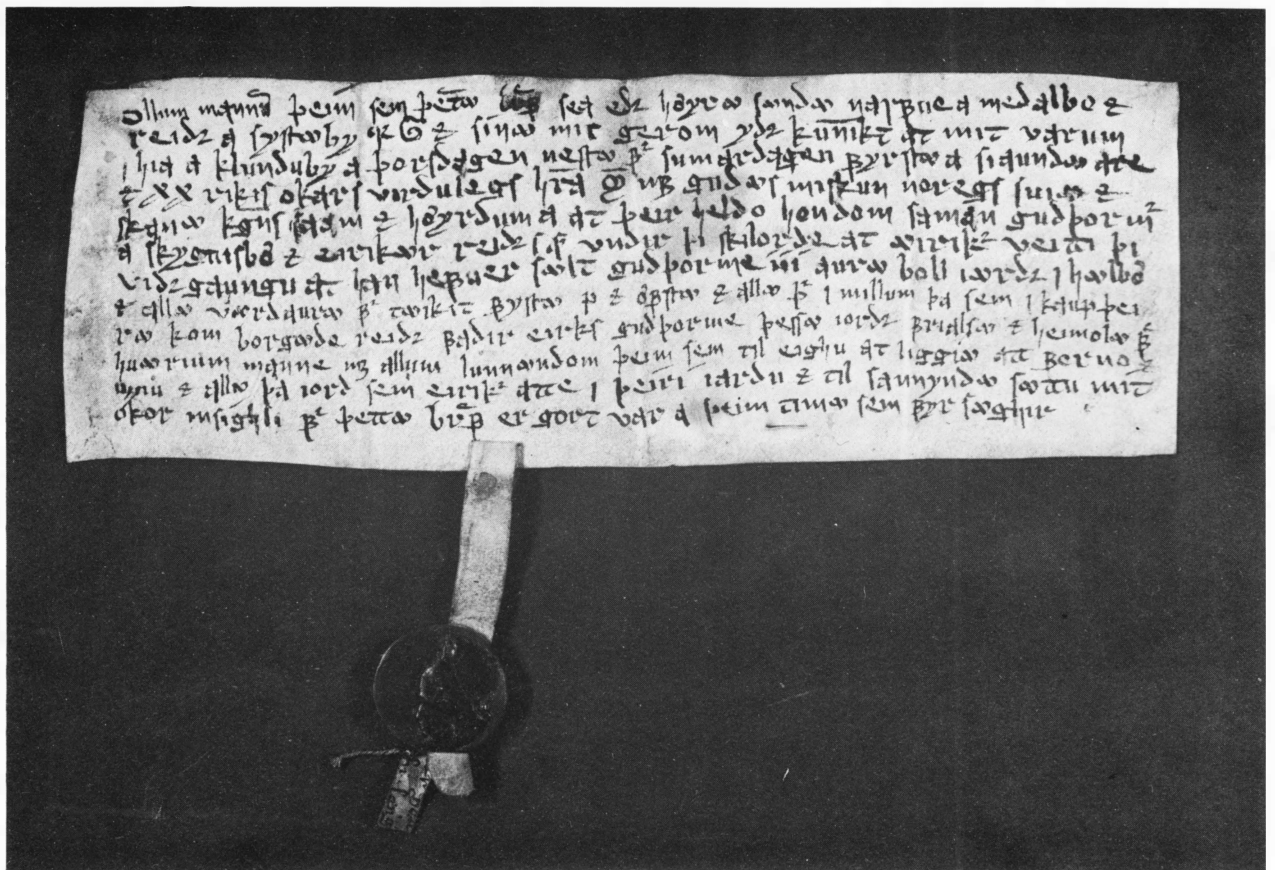 ollum mannū þeim sem þetta bref sea edr høyra sændæ narfue a medalbø ⁊
reidr a systæby q G ⁊ sinæ mit gerom ydr kunnikt at mit varum
i hia a klunduby a þorsdagen nesta fr sumardagen fyrstæ a siaundæ are
⁊ xx rikis okars virdulegs hra m mz guds miskun noregs suia ⁊
skana kgns saam ⁊ høyrdum a at þeir heldo hondom saman gudþormr
a skygnisbø ⁊ eirikær reidr s s vndir þi skilorde at æirikr veitti þi
vidrgaungu at han hefuer sælt gudþorme iii aura boll iærdr i hælbø
⁊ alla værdaura fr tækit fysta p ⁊ øfsta ⁊ alla þr i millum þa sem i kaup þei
ra kom borgade reidr fadir eiriks gudþorme þessa iord frialsa ⁊ heimola fr
huærium manne mz allum lunnændom þeim sem til eighu at liggia at forno
nyiu ⁊ alla þa iord sem eirikr atte i þeiri iardu ⁊ til sannynda sættu mit
okor insighli fr þetta bref er gort var a þeim tima sem fyr sæghir